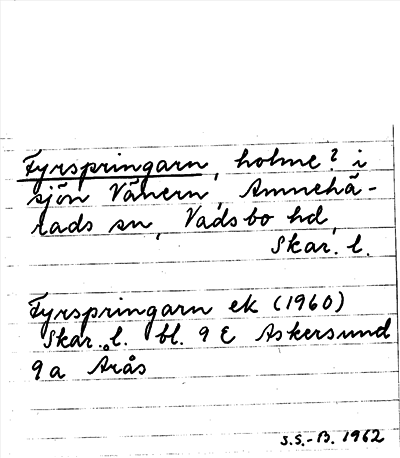 Fyrspringarn, holme? i
sjön Vänern, Amnehä-
rads sn, Vadsbo hd,
Skar. l.
Fyrspringarn ek (1960)
Skar. l. bl. 9 E Askersund
9 a Arås
S.S.-B. 1962